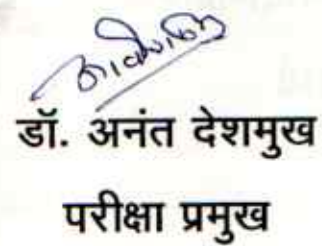 डॉ. अनंत देशमुख
परीक्षा प्रमुख